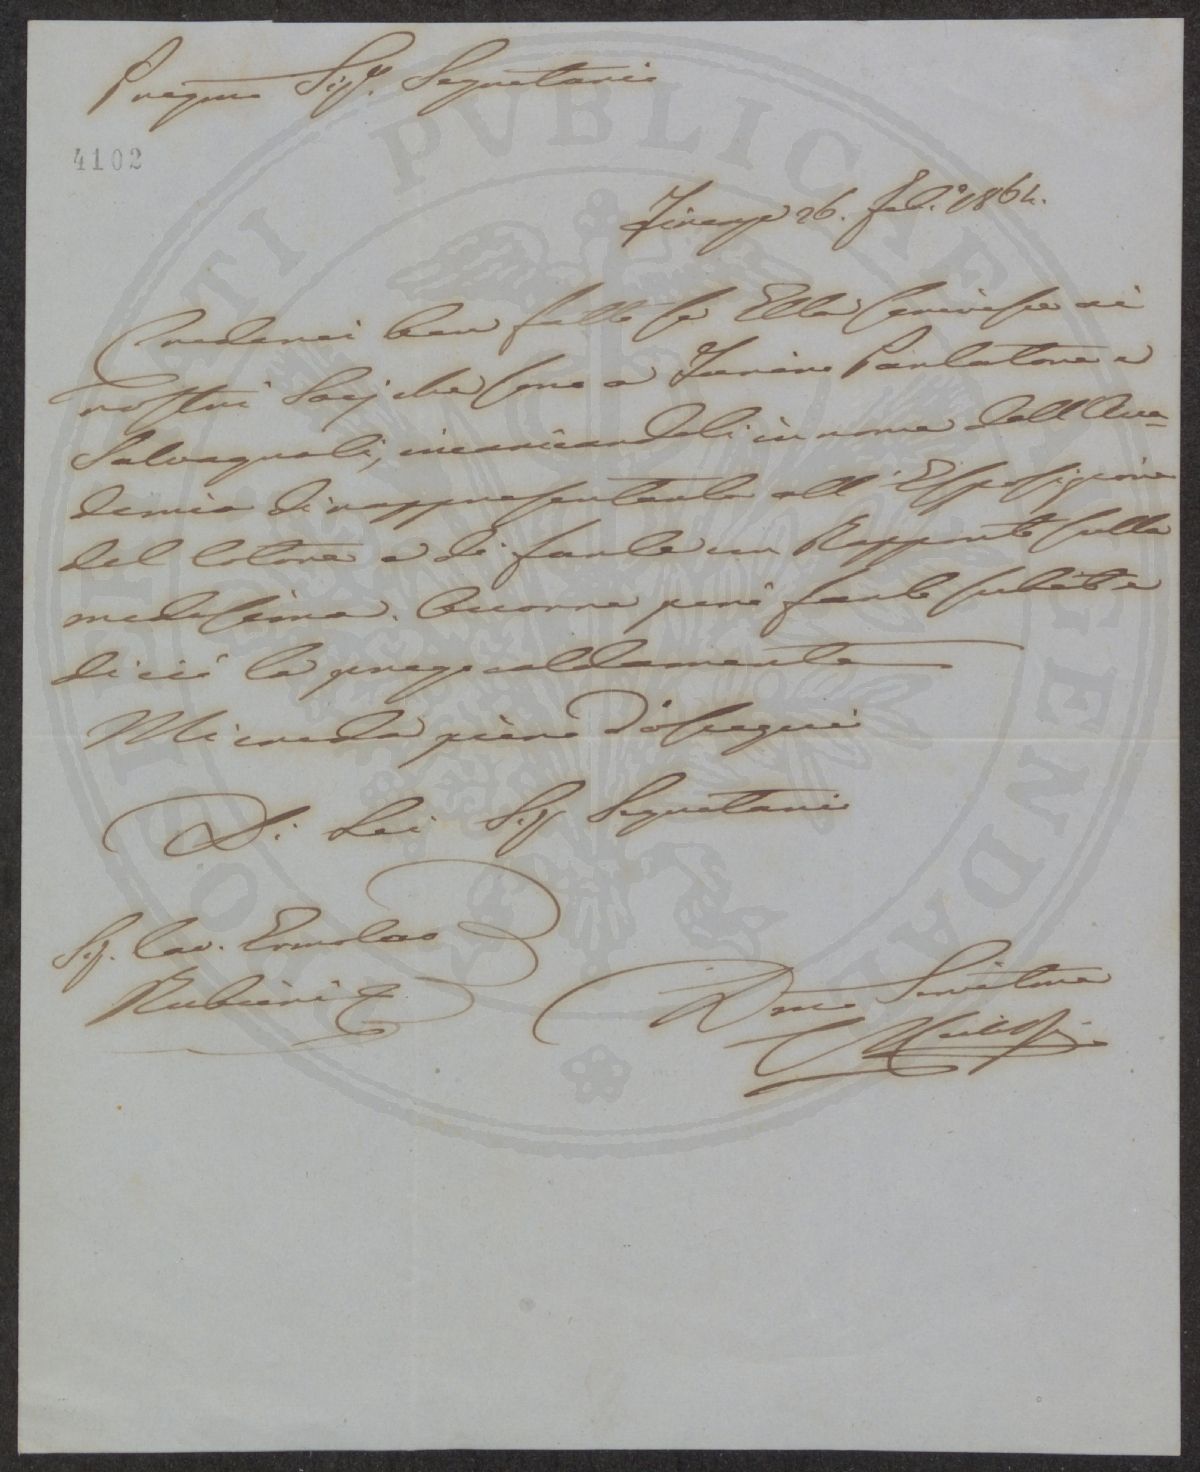 Pregmo Sigr. Segretario
4102
Firenze 26. Feb.o 1864.
Crederei ben fatto se Ella scrivesse ai
nostri Socj che sono a Torino Parlatore e
Salvagnoli, incaricandoli in nome dell'Acca=
demia di rappresentarla all'Esposizione
del Cotone e di farle un Rapporto sulla
medesima. Occorre però farlo subito e
di ciò la prego caldamente
Mi creda pieno d'ossequio
Di Lei Sigr Segretario
Sig. Cav. Ermolao
Rubieri
Dmo Servitore
PVBLICAE